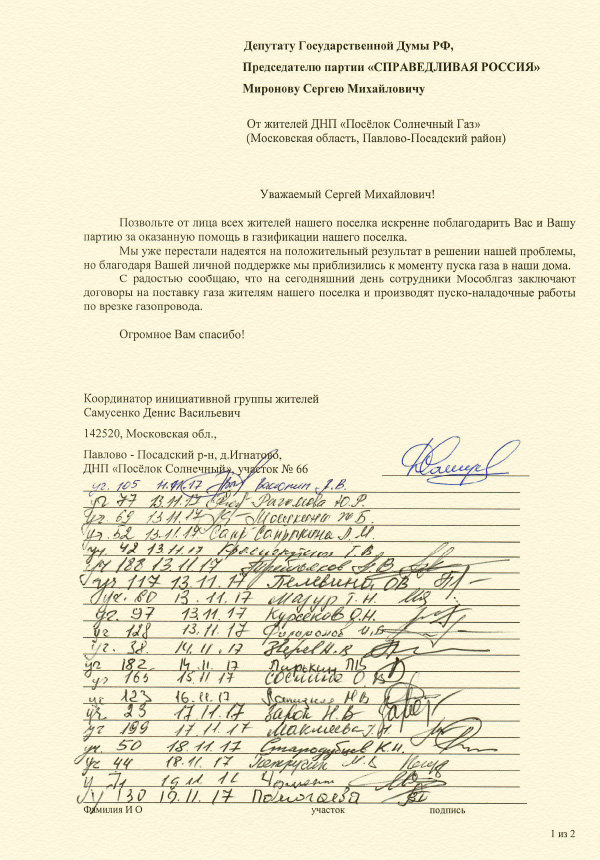 Депутату Государственной Думы РФ,
Председателю партии «СПРАВЕДЛИВАЯ РОССИЯ»
Миронову Сергею Михайловичу
От жителей ДНП «Посёлок Солнечный Газ»
(Московская область, Павлово-Посадский район)
Уважаемый Сергей Михайлович!
Позвольте от лица всех жителей нашего поселка искренне поблагодарить Вас и Вашу
партию за оказанную помощь в газификации нашего поселка.
Мы уже перестали надеятся на положительный результат в решении нашей проблемы,
но благодаря Вашей личной поддержке мы приблизились к моменту пуска газа в наши дома.
С радостью сообщаю, что на сегодняшний день сотрудники Мособлгаз заключают
договоры на поставку газа жителям нашего поселка и производят пуско-наладочные работы
по врезке газопровода.
Огромное Вам спасибо!
Координатор инициативной группы жителей
Самусенко Денис Васильевич
142520, Московская обл.,
Павлово - Посадский р-н, д.Игнатово,
ДНП «Посёлок Солнечный», участок № 66
уч. 105 17
уч 77 13.11.17 Ю.Р.
уч. 69 13.11.17
уч. 52 13.11.17 Л.М.
уч. 42 13.11.17 Т.В.
уч 122 13.11.17
уч 117 13.11.17 Пелевина О.В
уч. 60 13.11.17 Мазур Т.Н.
уч. 97 13.11.17 Курсеков О.Н.
уч 128 13.11.17
уч. 38. 14.11.17 Зверев
уч 182 14.11.17 Пирький
уч 165 15.11.17
уч 123 16.11.17
уч. 23 17.11.17 Зарой Н.В
уч 199 17.11.17
уч. 50 18.11.17 Стародубцев К.Н.
уч 44 18.11.17
уч 71
уч 130 19.11.17
Фамилия И О участок подпись
1 из 2